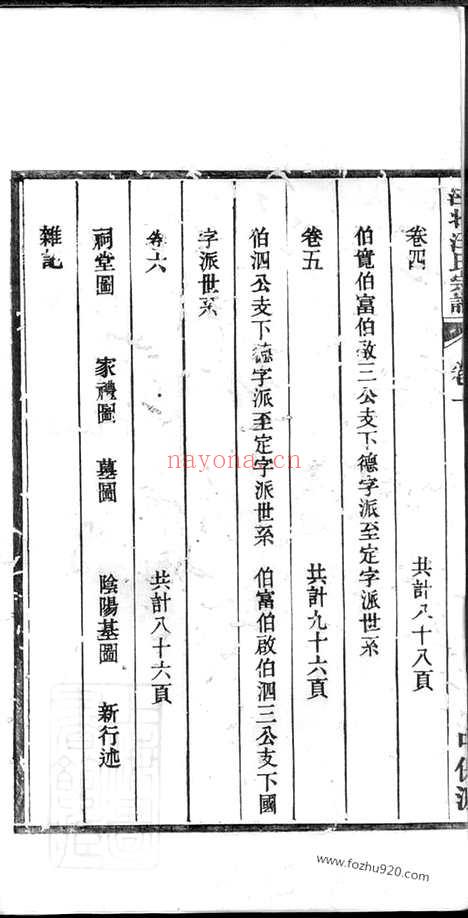 汪氏宗譜
卷一
卷四
共計八十八頁
伯寬伯富伯啟三公支下德字派至定字派世系
卷五
共計九十六頁
伯泗公支下德字派至定字派世系 伯富伯啟伯泗三公支下國
字派世系
卷六
共計八十六頁
祠堂圖 家禮圖 墓圖 陰陽基圖 新行述
雜記
nayona.cn
www.fozhu920.com